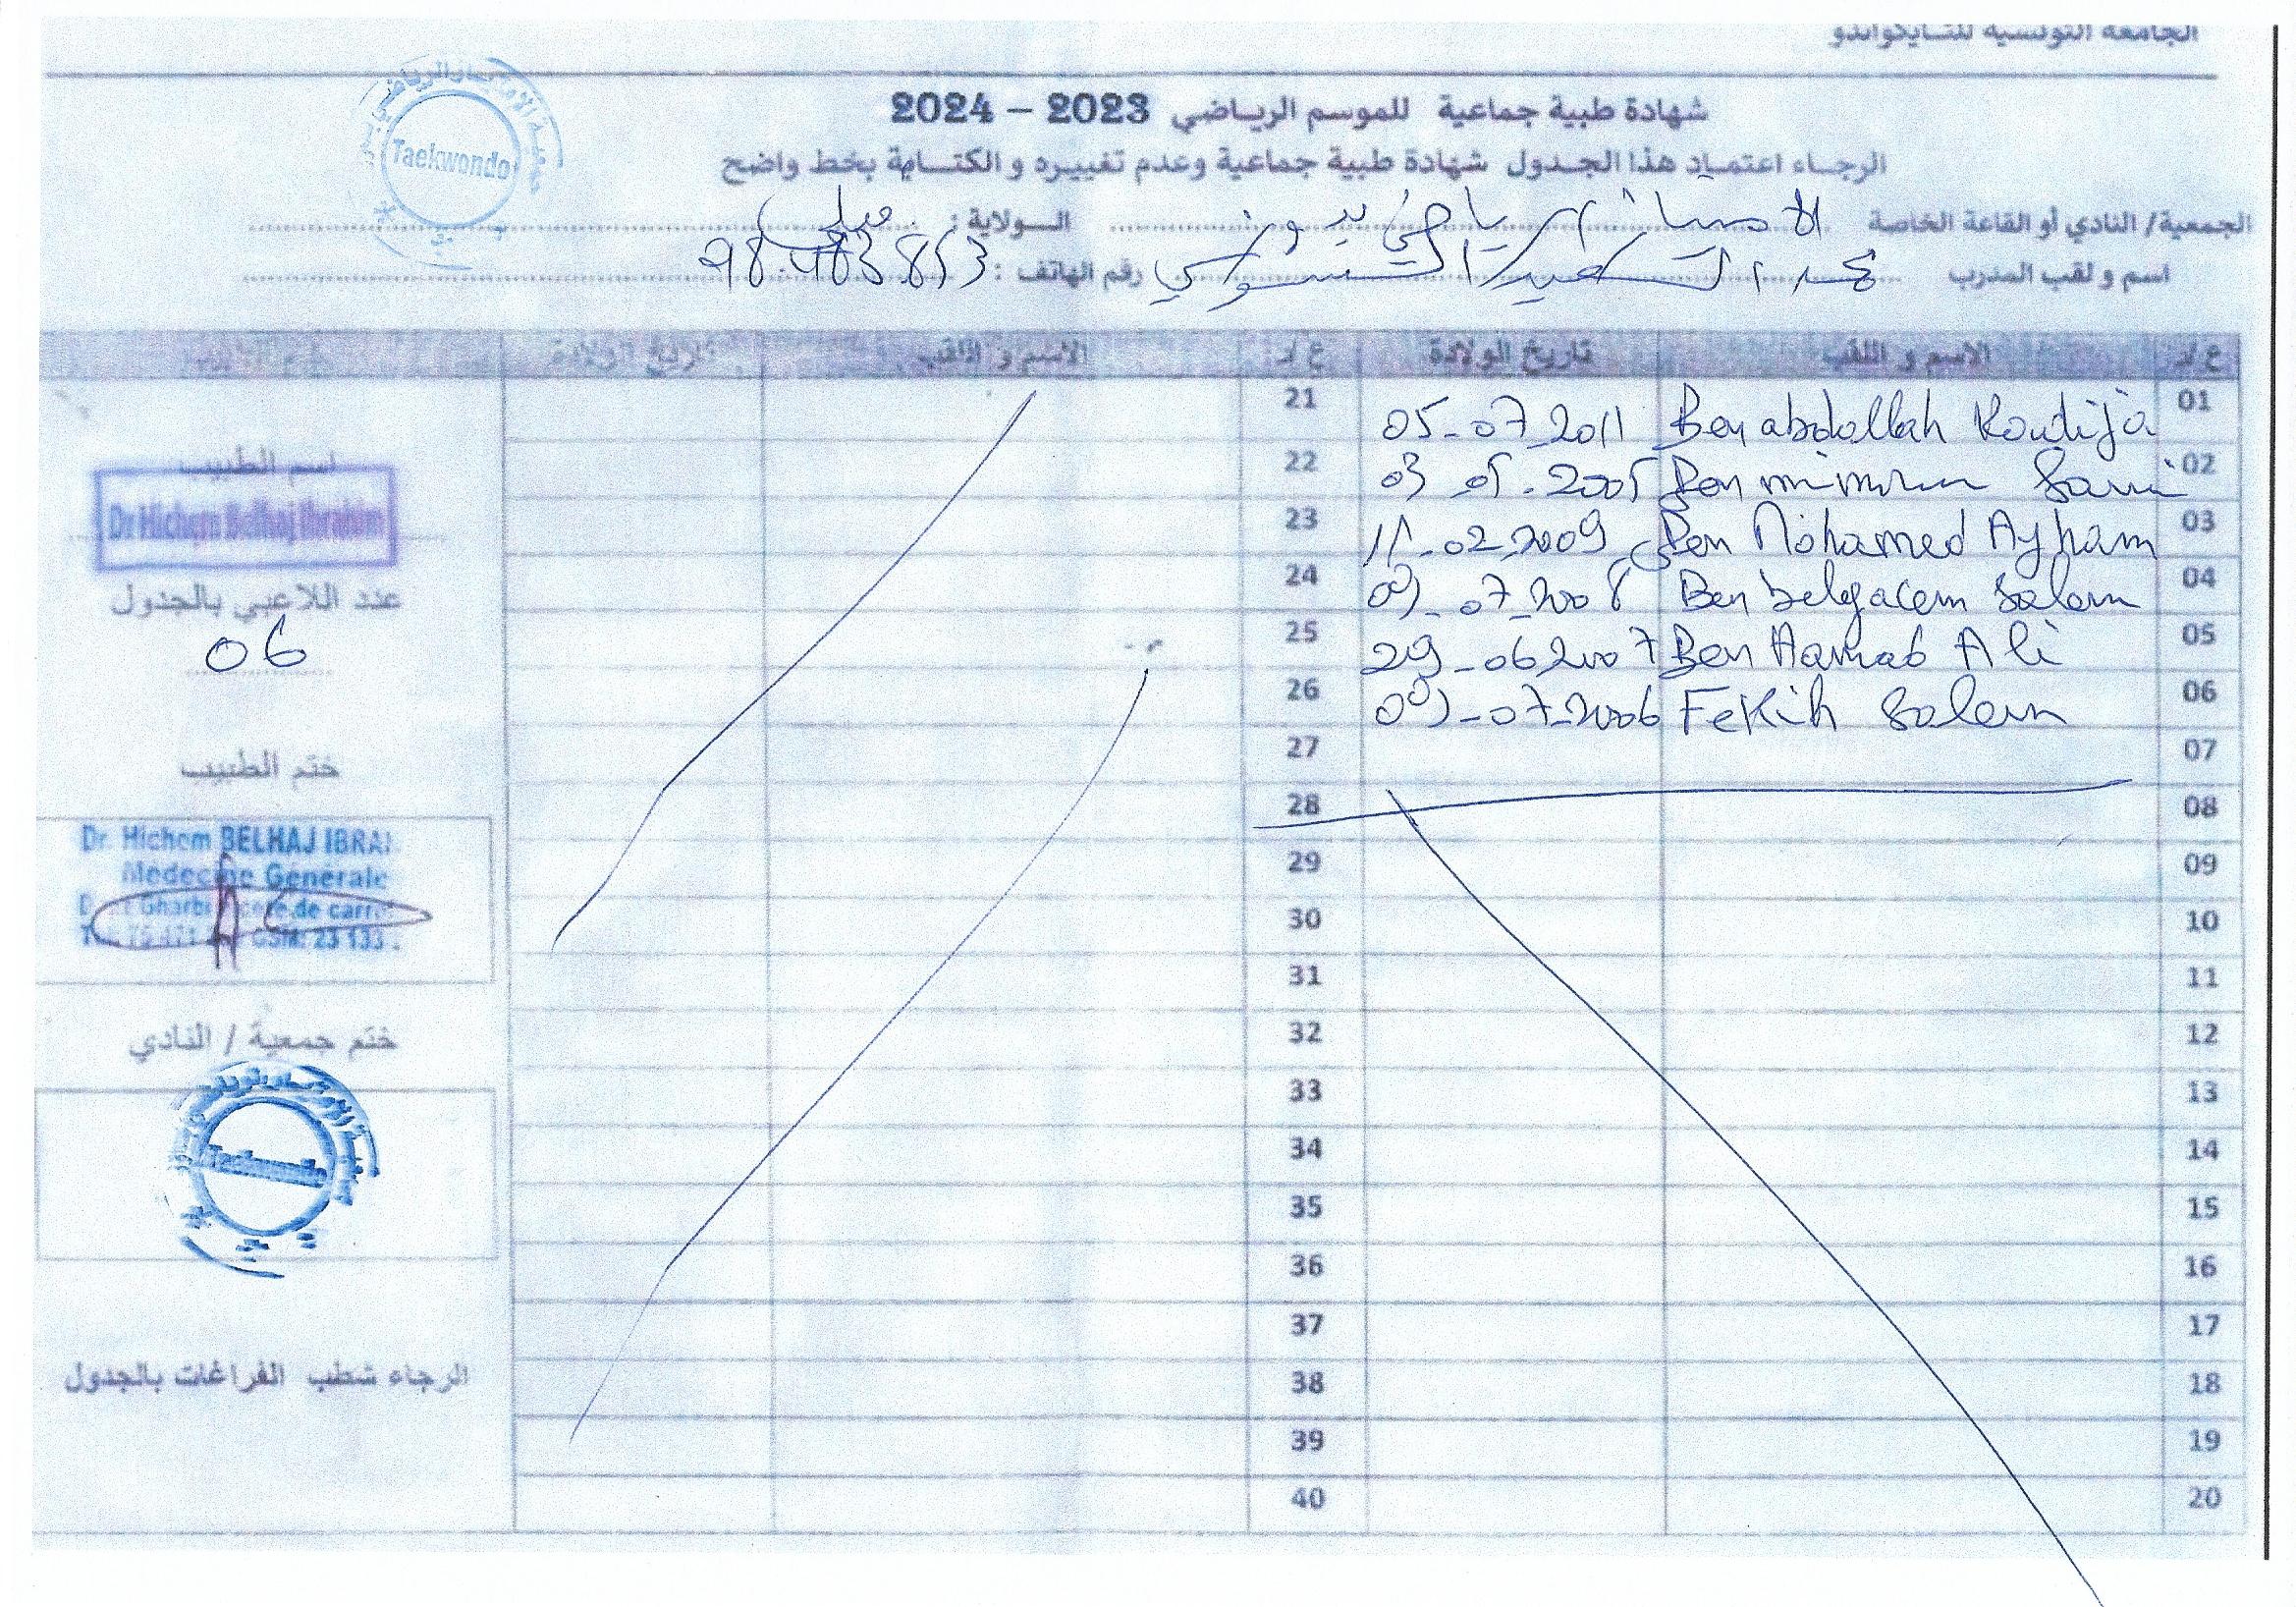 الجامعة التونسية للتايكواندو
شهادة طبية جماعية للموسم الرياضي 2023 – 2024
الرجاء اعتماد هذا الجدول شهادة طبية جماعية وعدم تغييره و الكتابة بخط واضح
الجمعية/ النادي أو القاعة الخاصة الولاية :
اسم و لقب المدرب رقم الهاتف : 98.483.853
Taekwondo
ع / د الاسم و اللقب تاريخ الولادة ع / د الاسم و اللقب تاريخ الولادة
01 Ben abdallah 05-07-2011 21
02 Ben 03-05-2005 22
03 Ben Mohamed Ayham 11-02-2009 23
04 Ben belgacem Salem 09-07-2008 24
05 Ben Ali 29-06-2007 25
06 Fekih Salem 09-07-2006 26
07 27
08 28
09 29
10 30
11 31
12 32
13 33
14 34
15 35
16 36
17 37
18 38
19 39
20 40
اسم الطبيب
Dr Hichem Belhaj Ibrahim
عدد اللاعبي بالجدول
06
ختم الطبيب
Dr. Hichem BELHAJ IBRA
Médecine Générale
GSM: 23 133
ختم جمعية / النادي
الرجاء شطب الفراغات بالجدول